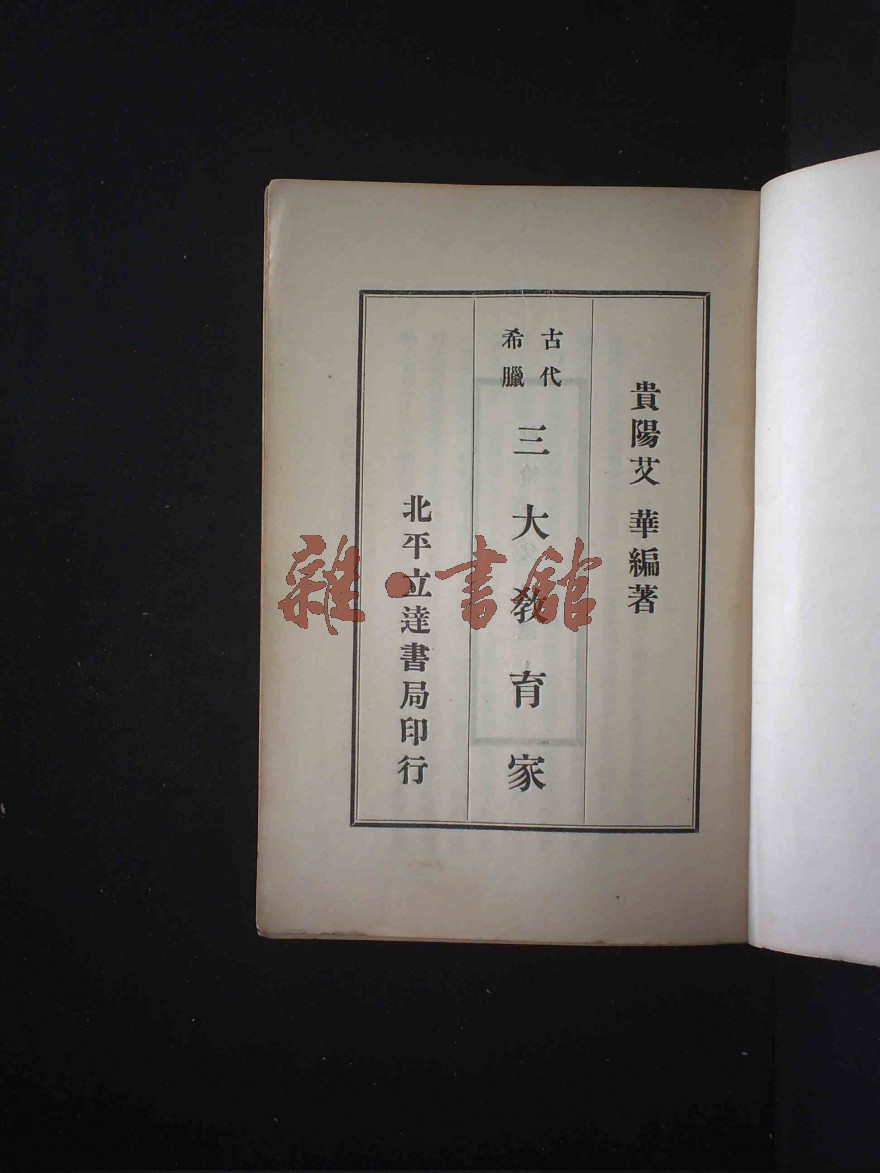 貴陽艾 華編著
古代
希臘
三大教育家
北平立達書局印行
雜·書館